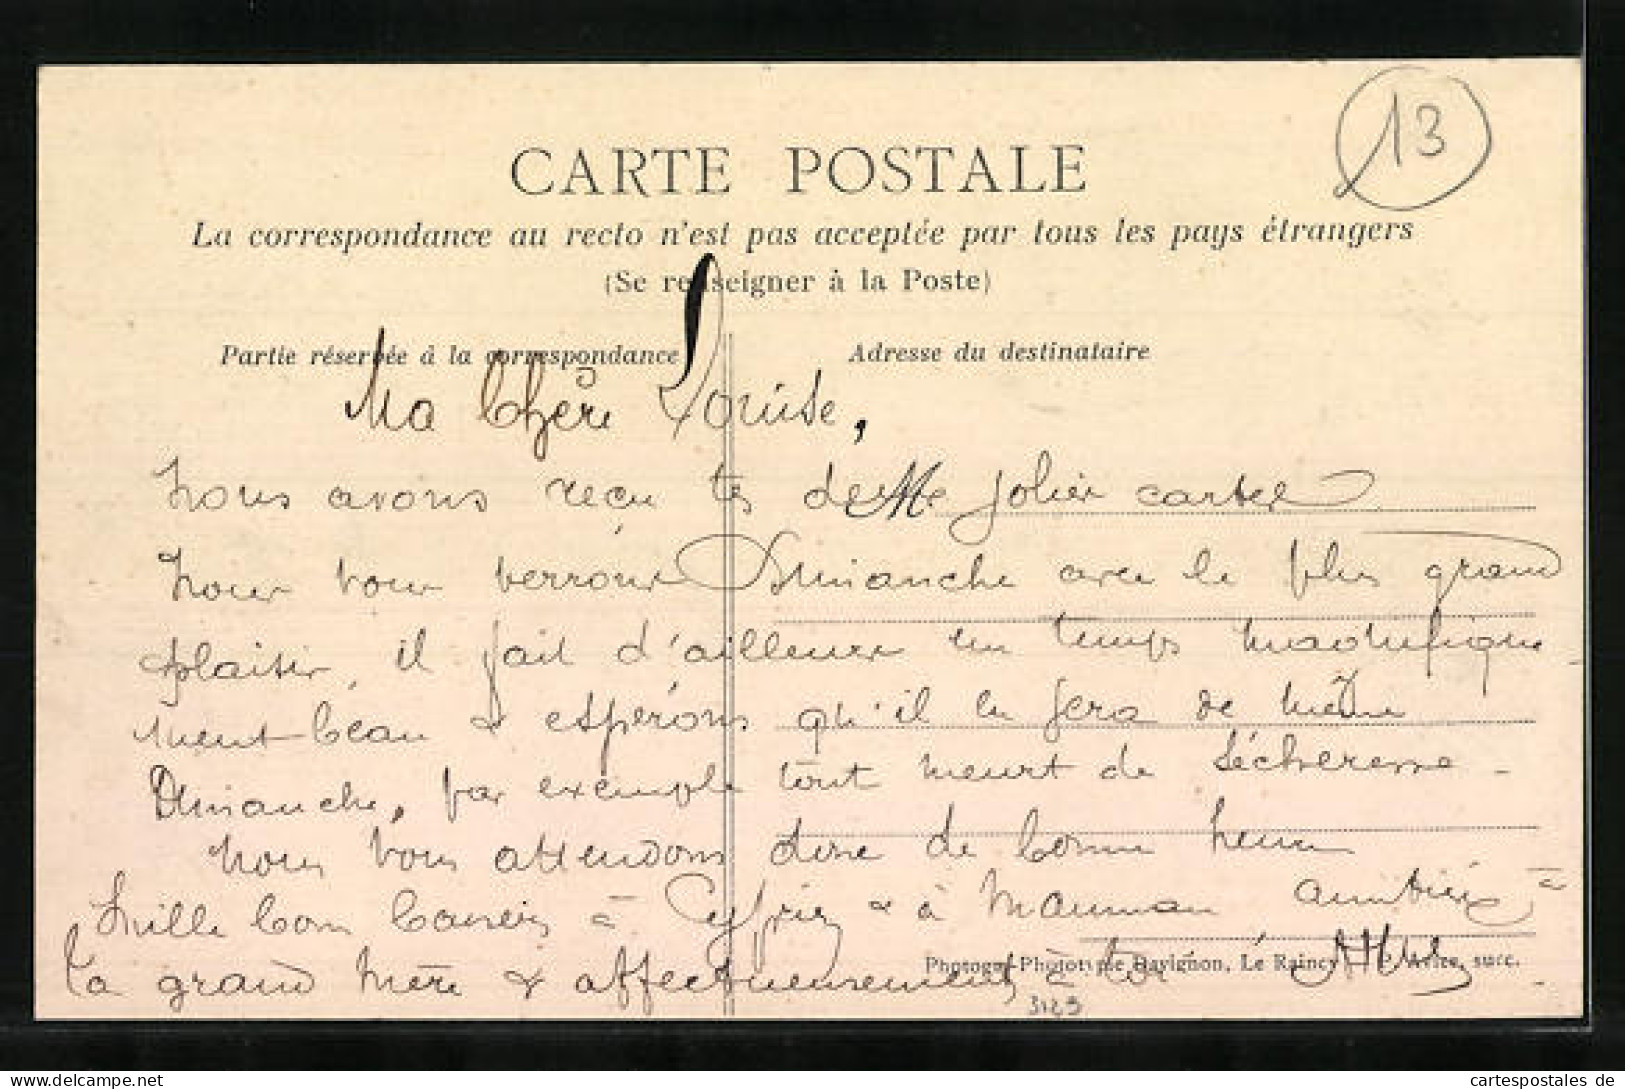 13
CARTE POSTALE
La correspondance au recto n'est pas acceptée par tous les pays étrangers
(Se renseigner à la Poste)
Partie réservée à la correspondance
Adresse du destinataire
Ma Chère Louise,
Nous avons reçu tes de jolies cartes
Nous vous verrons Dimanche avec le plus grand
plaisir, il fait d'ailleurs un temps magnifique
ment beau & espérons qu'il en sera de même
Dimanche, par exemple tout meurt de sécheresse -
Nous vous attendons donc de bonne heure
Mille bons baisers à & à Maman amitiés à
ta grand Mère & affectueusement à toi
Photogr-Phototypie Davignon, Le Raincy succ.
3129
cartespostales de